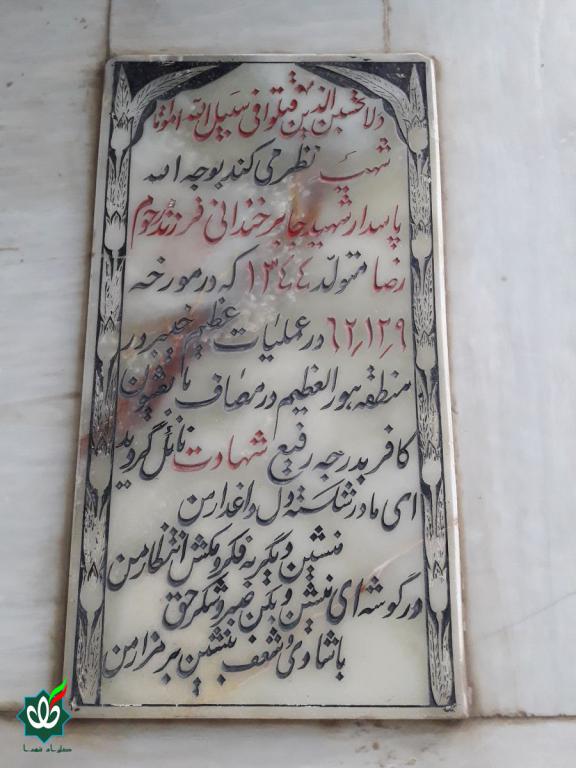 ولا تحسبن الذین قتلوا فی سبیل الله امواتا
شهید نظر می کند بوجه الله
پاسدار شهید جابر خندانی فرزند مرحوم
رضا متولد ۱۳۴۴ که در مورخه
۶۲٫۱۲٫۹ در عملیات عظیم خیبر در
منطقه هورالعظیم در مصاف با بعثیون
کافر بدرجه رفیع شهادت نائل گردید
ای مادر شکسته دل و داغدار من
منشین و بگریه فکر و مکش انتظار من
در گوشه ای منشین و بکن صبر و شکر حق
با شادی و شعف بنشین بر مزار من